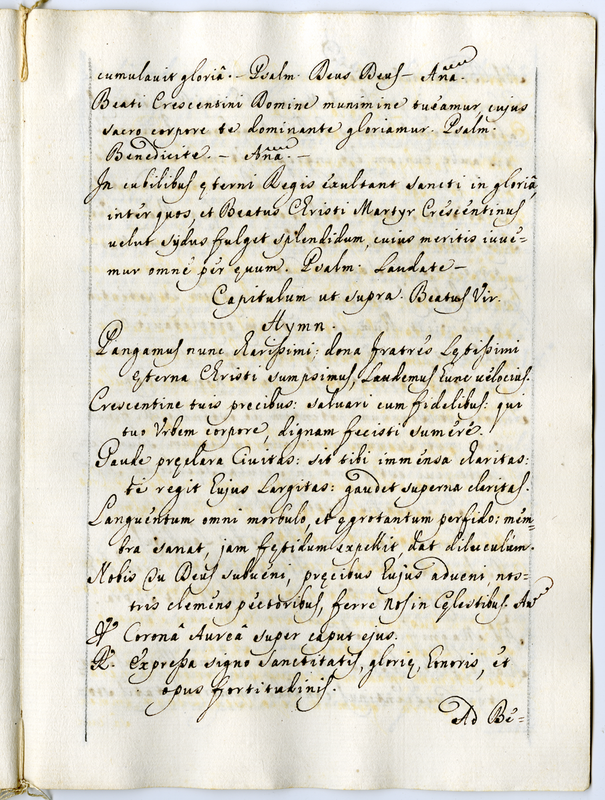 cumulavit gloriâ. – Psalm. Deus Deus – Ana.
Beati Crescentini Domine munimine tueamur, cujus
sacro corpore te dominante gloriamur. Psalm.
Benedicite. – Ana. –
In cubilibus ęterni Regis exultant sancti in gloriâ,
inter quos, et Beatus Christi Martyr Crescentinus
velut sydus fulget splendidum, cuius meritis iuve=
mur omne per ęuum. Psalm. Laudate –
Capitulum ut supra. Beatus Vir.
Hymn.
Pangamus nunc charissimi: dona fratres lętissimi
ęterna Christi sumpsimus, Laudemus hunc velocius.
Crescentine tuis precibus: salvari cum fidelibus: qui
tuo Urbem corpore, dignam fecisti sumere.
Gaude pręclara Civitas: sit tibi immensa charitas:
te regit hujus Largitas: gaudet superna claritas.
Languentum omni morbulo, et ęgrotantum perfido: mem=
bra sanat, jam fętidum expellit, dat diluculum.
Nobis Tu Deus subveni, pręcibus hujus adveni, nos=
tris clemens pectoribus, ferre nos in Cęlestibus. Am
℣. Coronâ Aureâ super caput ejus.
℟. expressa signo sanctitatis, glorię, honoris, et
opus fortitudinis.
Ad Be=